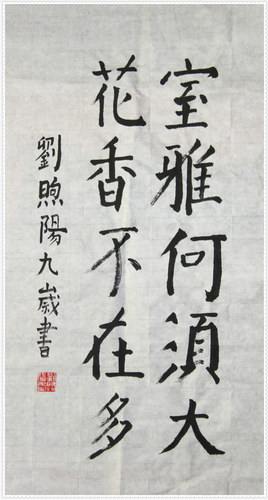 室雅何須大
花香不在多
劉煦陽九歲書